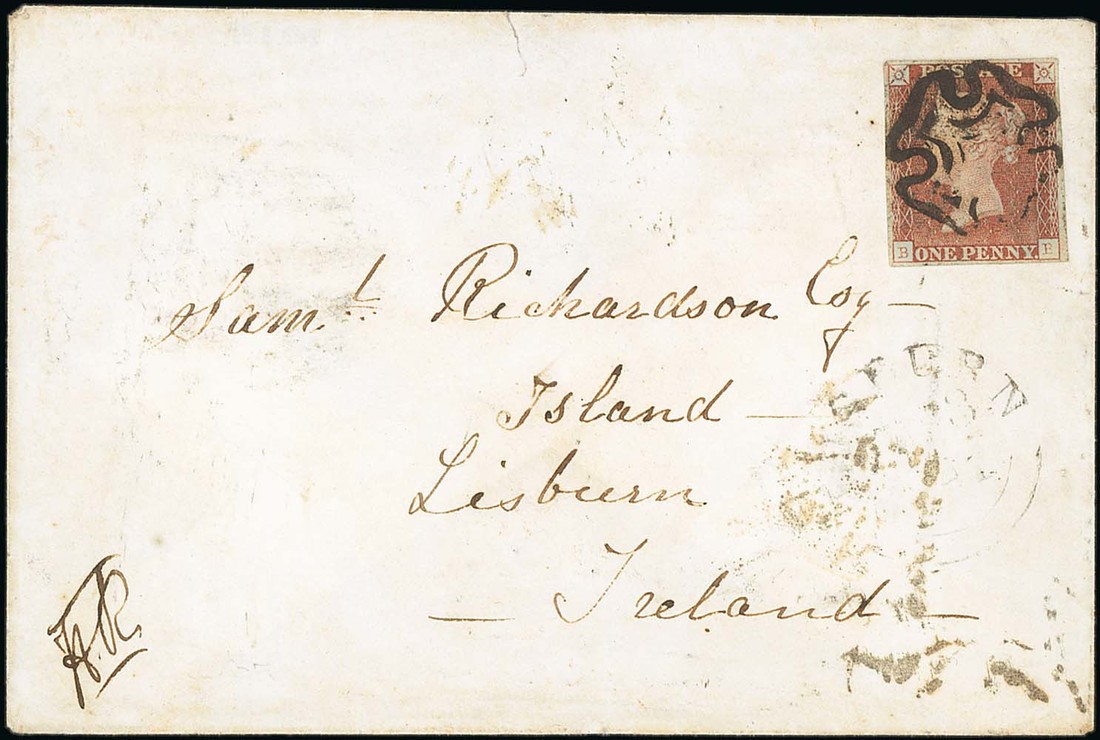 POSTAGE
B ONE PENNY
Saml. Richardson Esq
Island
Lisburn
Ireland
LISBURN